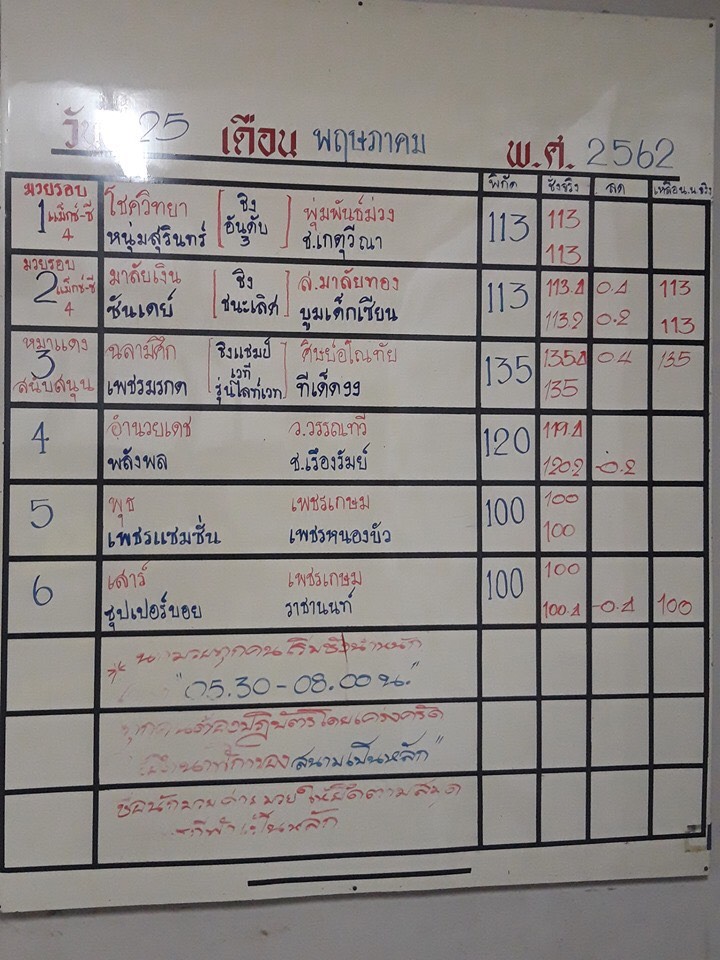 วัน 25 เดือน พฤษภาคม พ.ศ. 2562
พิกัด ชั่งจริง ลด เหลือน.น.จริง
มวยรอบ 1 แม็กซ์-ซี 4
โชควิทยา ชิงอันดับ 3 พุ่มพันธ์ม่วง 113 113
หนุ่มสุรินทร์ ช.เกตุวีณา 113
มวยรอบ 2 แม็กซ์-ซี 4
มาลัยเงิน ชิงชนะเลิศ ส.มาลัยทอง 113 113.4 0.4 113
ซันเดย์ บูมเด็กเซียน 113.2 0.2 113
หมาแดง 3 สนับสนุน
ฉลามศึก ชิงแชมป์เวทีรุ่นไลท์เวท ศิษย์อ๊โณทัย 135 135.4 0.4 135
เพชรมรกต ทีเด็ด99 135
4 อำนวยเดช ว.วรรณทวี 120 119.4
พลังพล ช.เรืองรัมย์ 120.2 -0.2
5 พุช เพชรเกษม 100 100
เพชรแชมชั่น เพชรหนองบัว 100
6 เสาร์ เพชรเกษม 100 100
ซุปเปอร์บอย ราชานนท์ 100.4 -0.4 100
* ทุกคนเริ่มชั่งน้ำหนัก
"05.30-08.00น."
ต้องปฏิบัติโดยเคร่งครัด
สนามเป็นหลัก"
ให้ยึดตามสมุด
เป็นหลัก